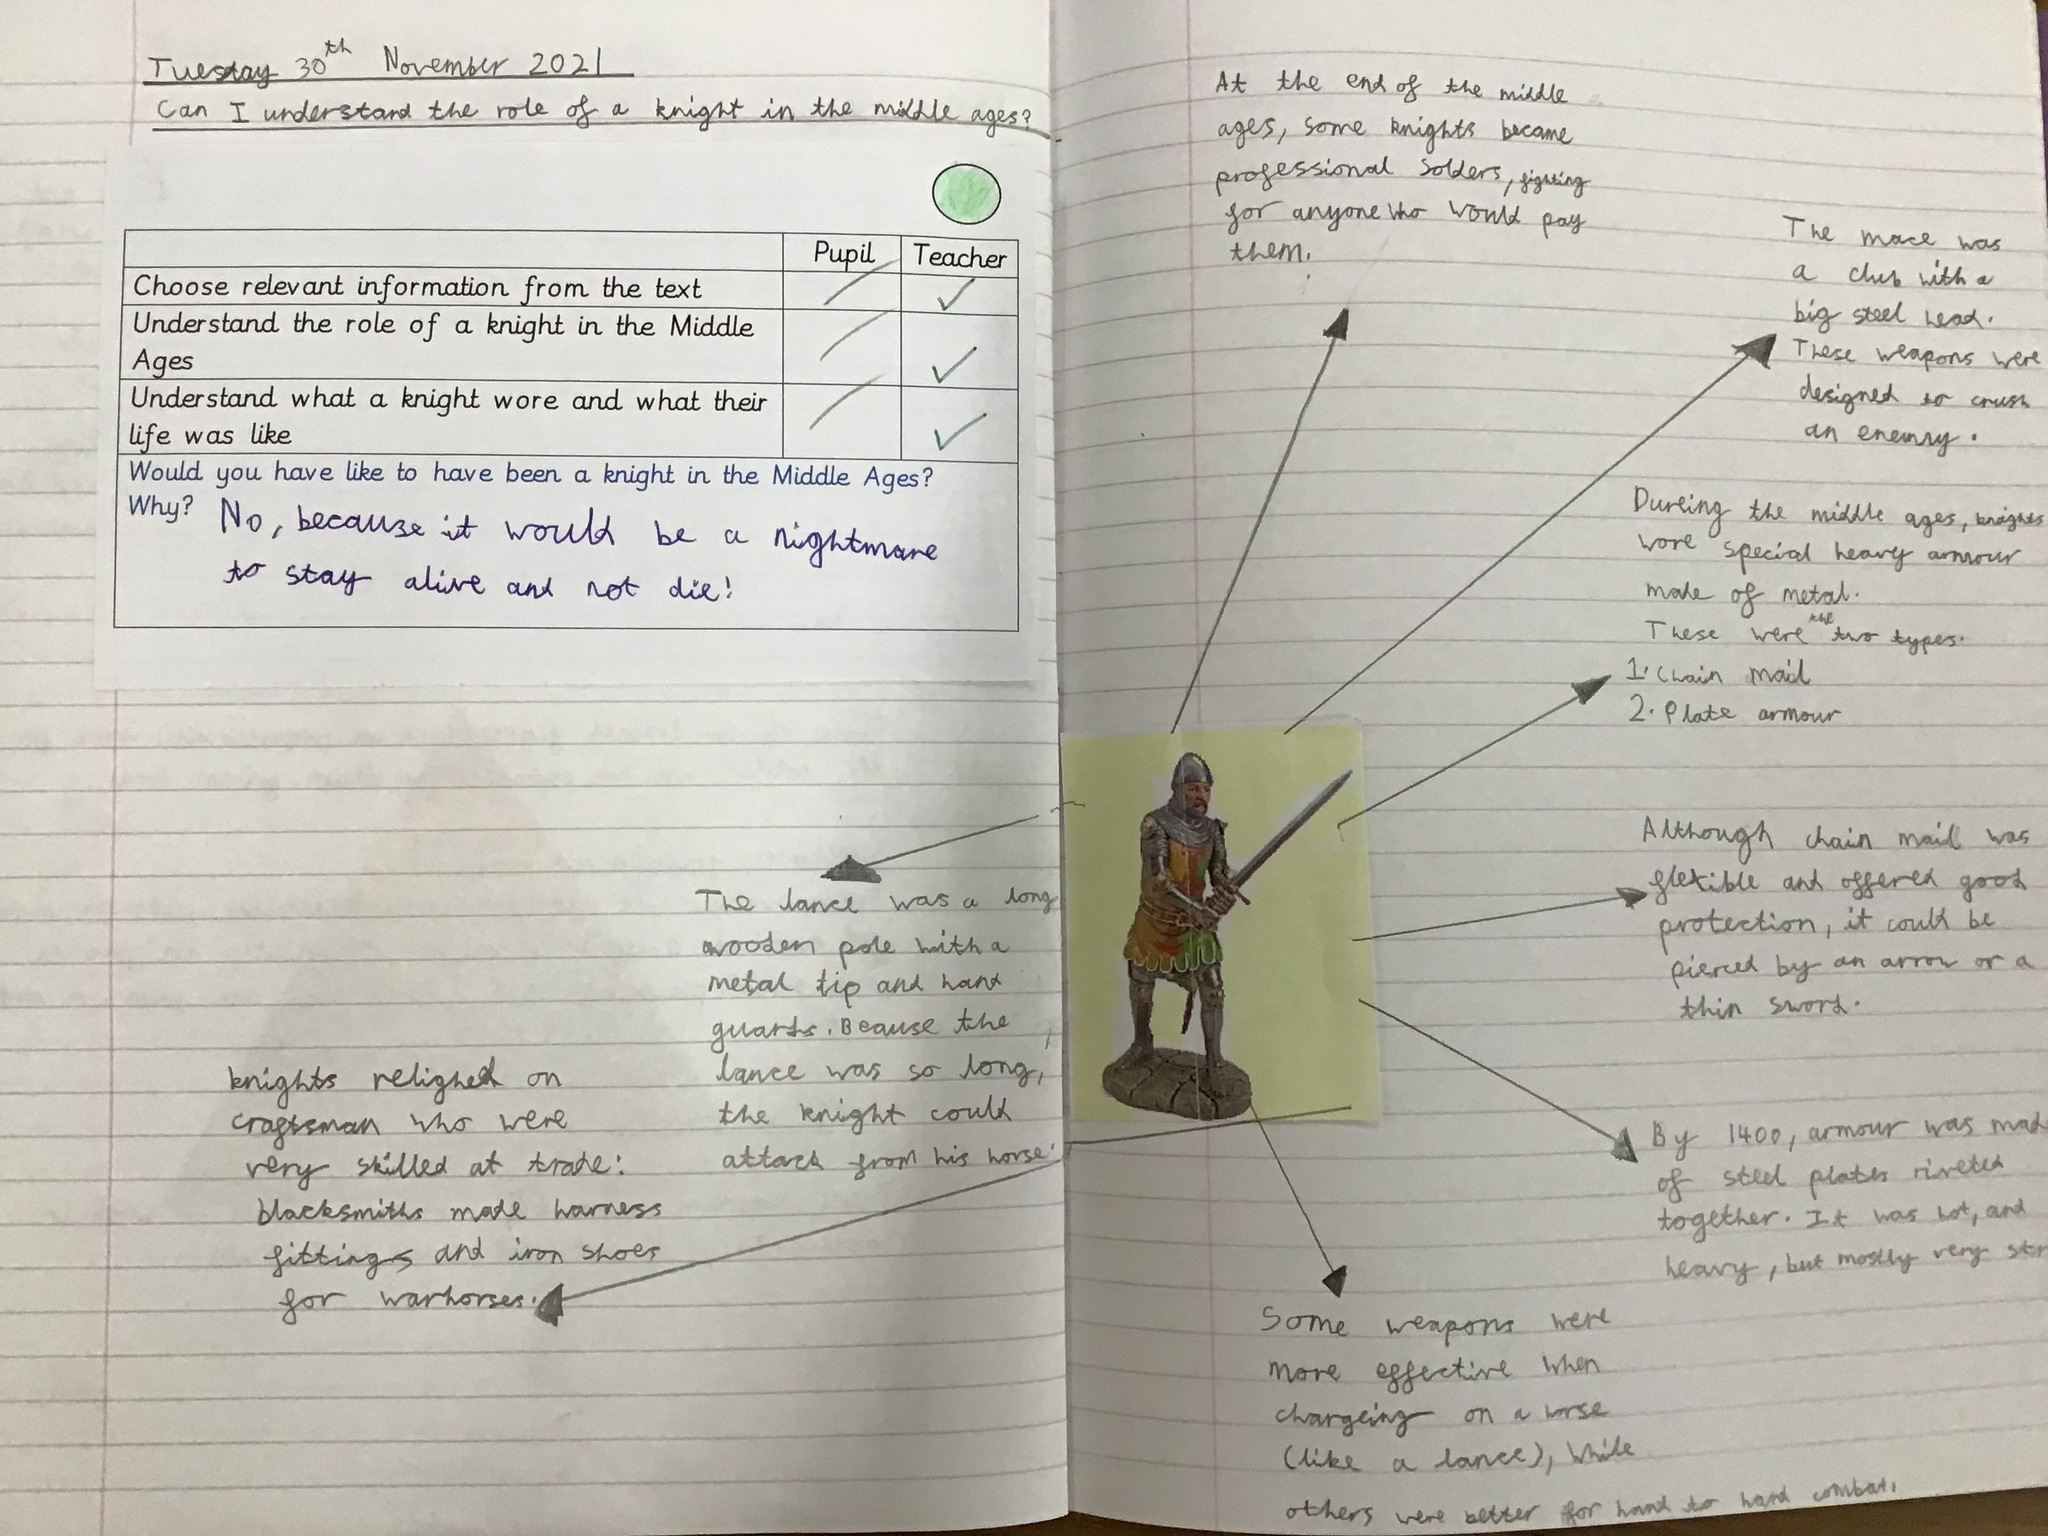 Tuesday 30th November 2021
Can I understand the role of a knight in the middle ages?
Pupil Teacher
Choose relevant information from the text
Understand the role of a knight in the Middle
Ages
Understand what a knight wore and what their
life was like
Would you have like to have been a knight in the Middle Ages?
Why? No, because it would be a nightmare
to stay alive and not die!
The lance was a long
wooden pole with a
metal tip and hand
guards. Beause the
lance was so long,
the knight could
attack from his horse.
knights relighed on
craftsman who were
very skilled at trade:
blacksmiths made harness
fittings and iron shoes
for warhorses.
At the end of the middle
ages, some knights became
professional solders, fighting
for anyone who would pay
them.
The mace was
a club with a
big steel head.
These weapons were
designed to crush
an enemy.
Dureing the middle ages, knights
wore special heavy armour
made of metal.
These were the two types.
1. Chain mail
2. Plate armour
Although chain mail was
flexible and offered good
protection, it could be
pierced by an arrow or a
thin sword.
By 1400, armour was mad
of steel plates riveted
together. It was hot, and
heavy, but mostly very str
Some weapons were
more effective when
chargeing on a horse
(like a lance), while
others were better for hand to hand combat.